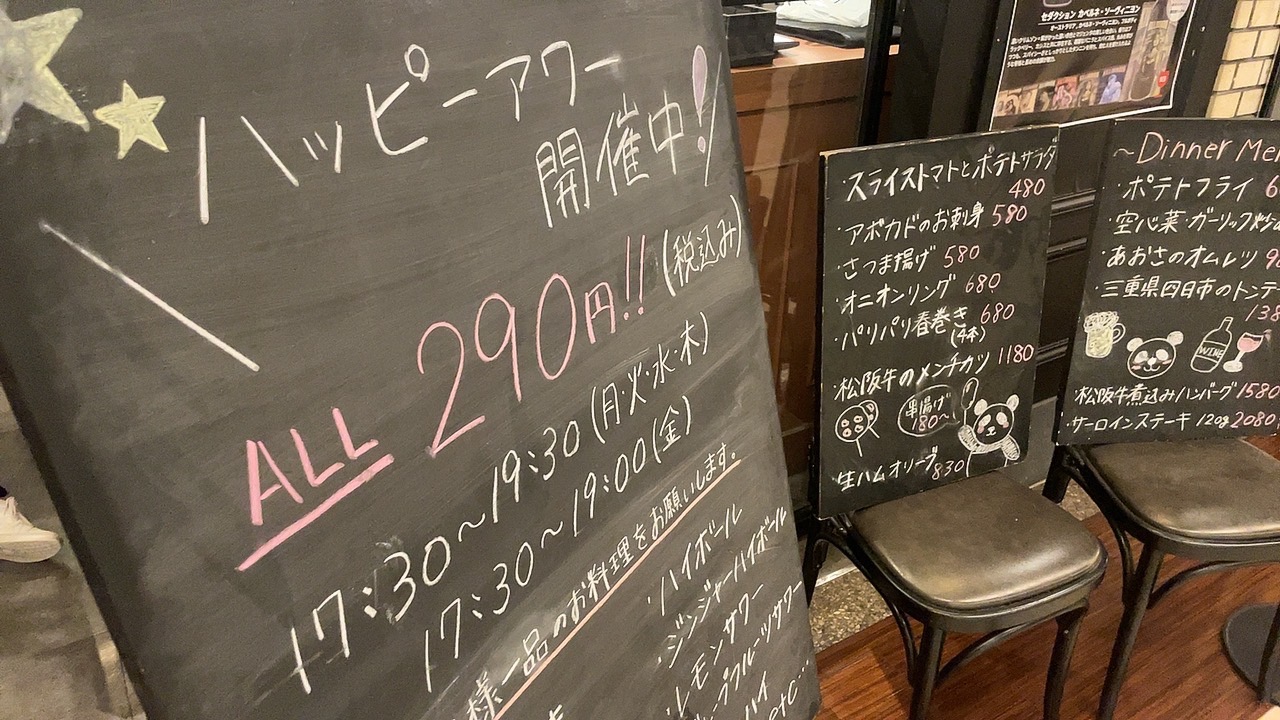 ハッピーアワー
開催中!
ALL 290円!! (税込み)
17:30～19:30 (月・火・水・木)
17:30～19:00 (金)
様一品のお料理をお願いします。
・ハイボール
・ジンジャーハイボール
・レモンサワー
ープフルーツサワー
ハイ
etc...
セダクション カベルネ・ソーヴィニヨン
・スライストマトとポテトサラダ
480
・アボカドのお刺身 580
・さつま揚げ 580
・オニオンリング 680
・パリパリ春巻き 680
(4本)
松阪牛のメンチカツ 1180
串揚げ
180～
生ハムオリーブ 830
～Dinner Me
・ポテトフライ 6
・空心菜・ガーリック炒
・あおさのオムレツ 9
・三重県四日市のトンテ
138
WINE
松阪牛煮込みハンバーグ 1580
サーロインステーキ 120g 2080